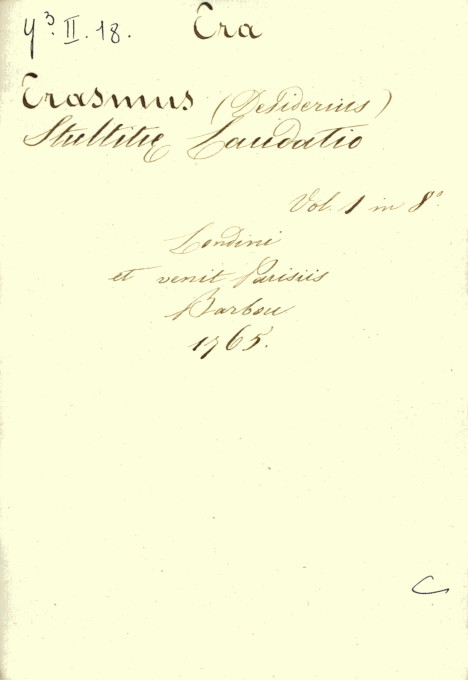 y³. II. 18. Era
Erasmus (Desiderius)
Stultitię Laudatio
Vol. 1 in 8°
Londini
et venit Parisiis
Barbou
1765.
C